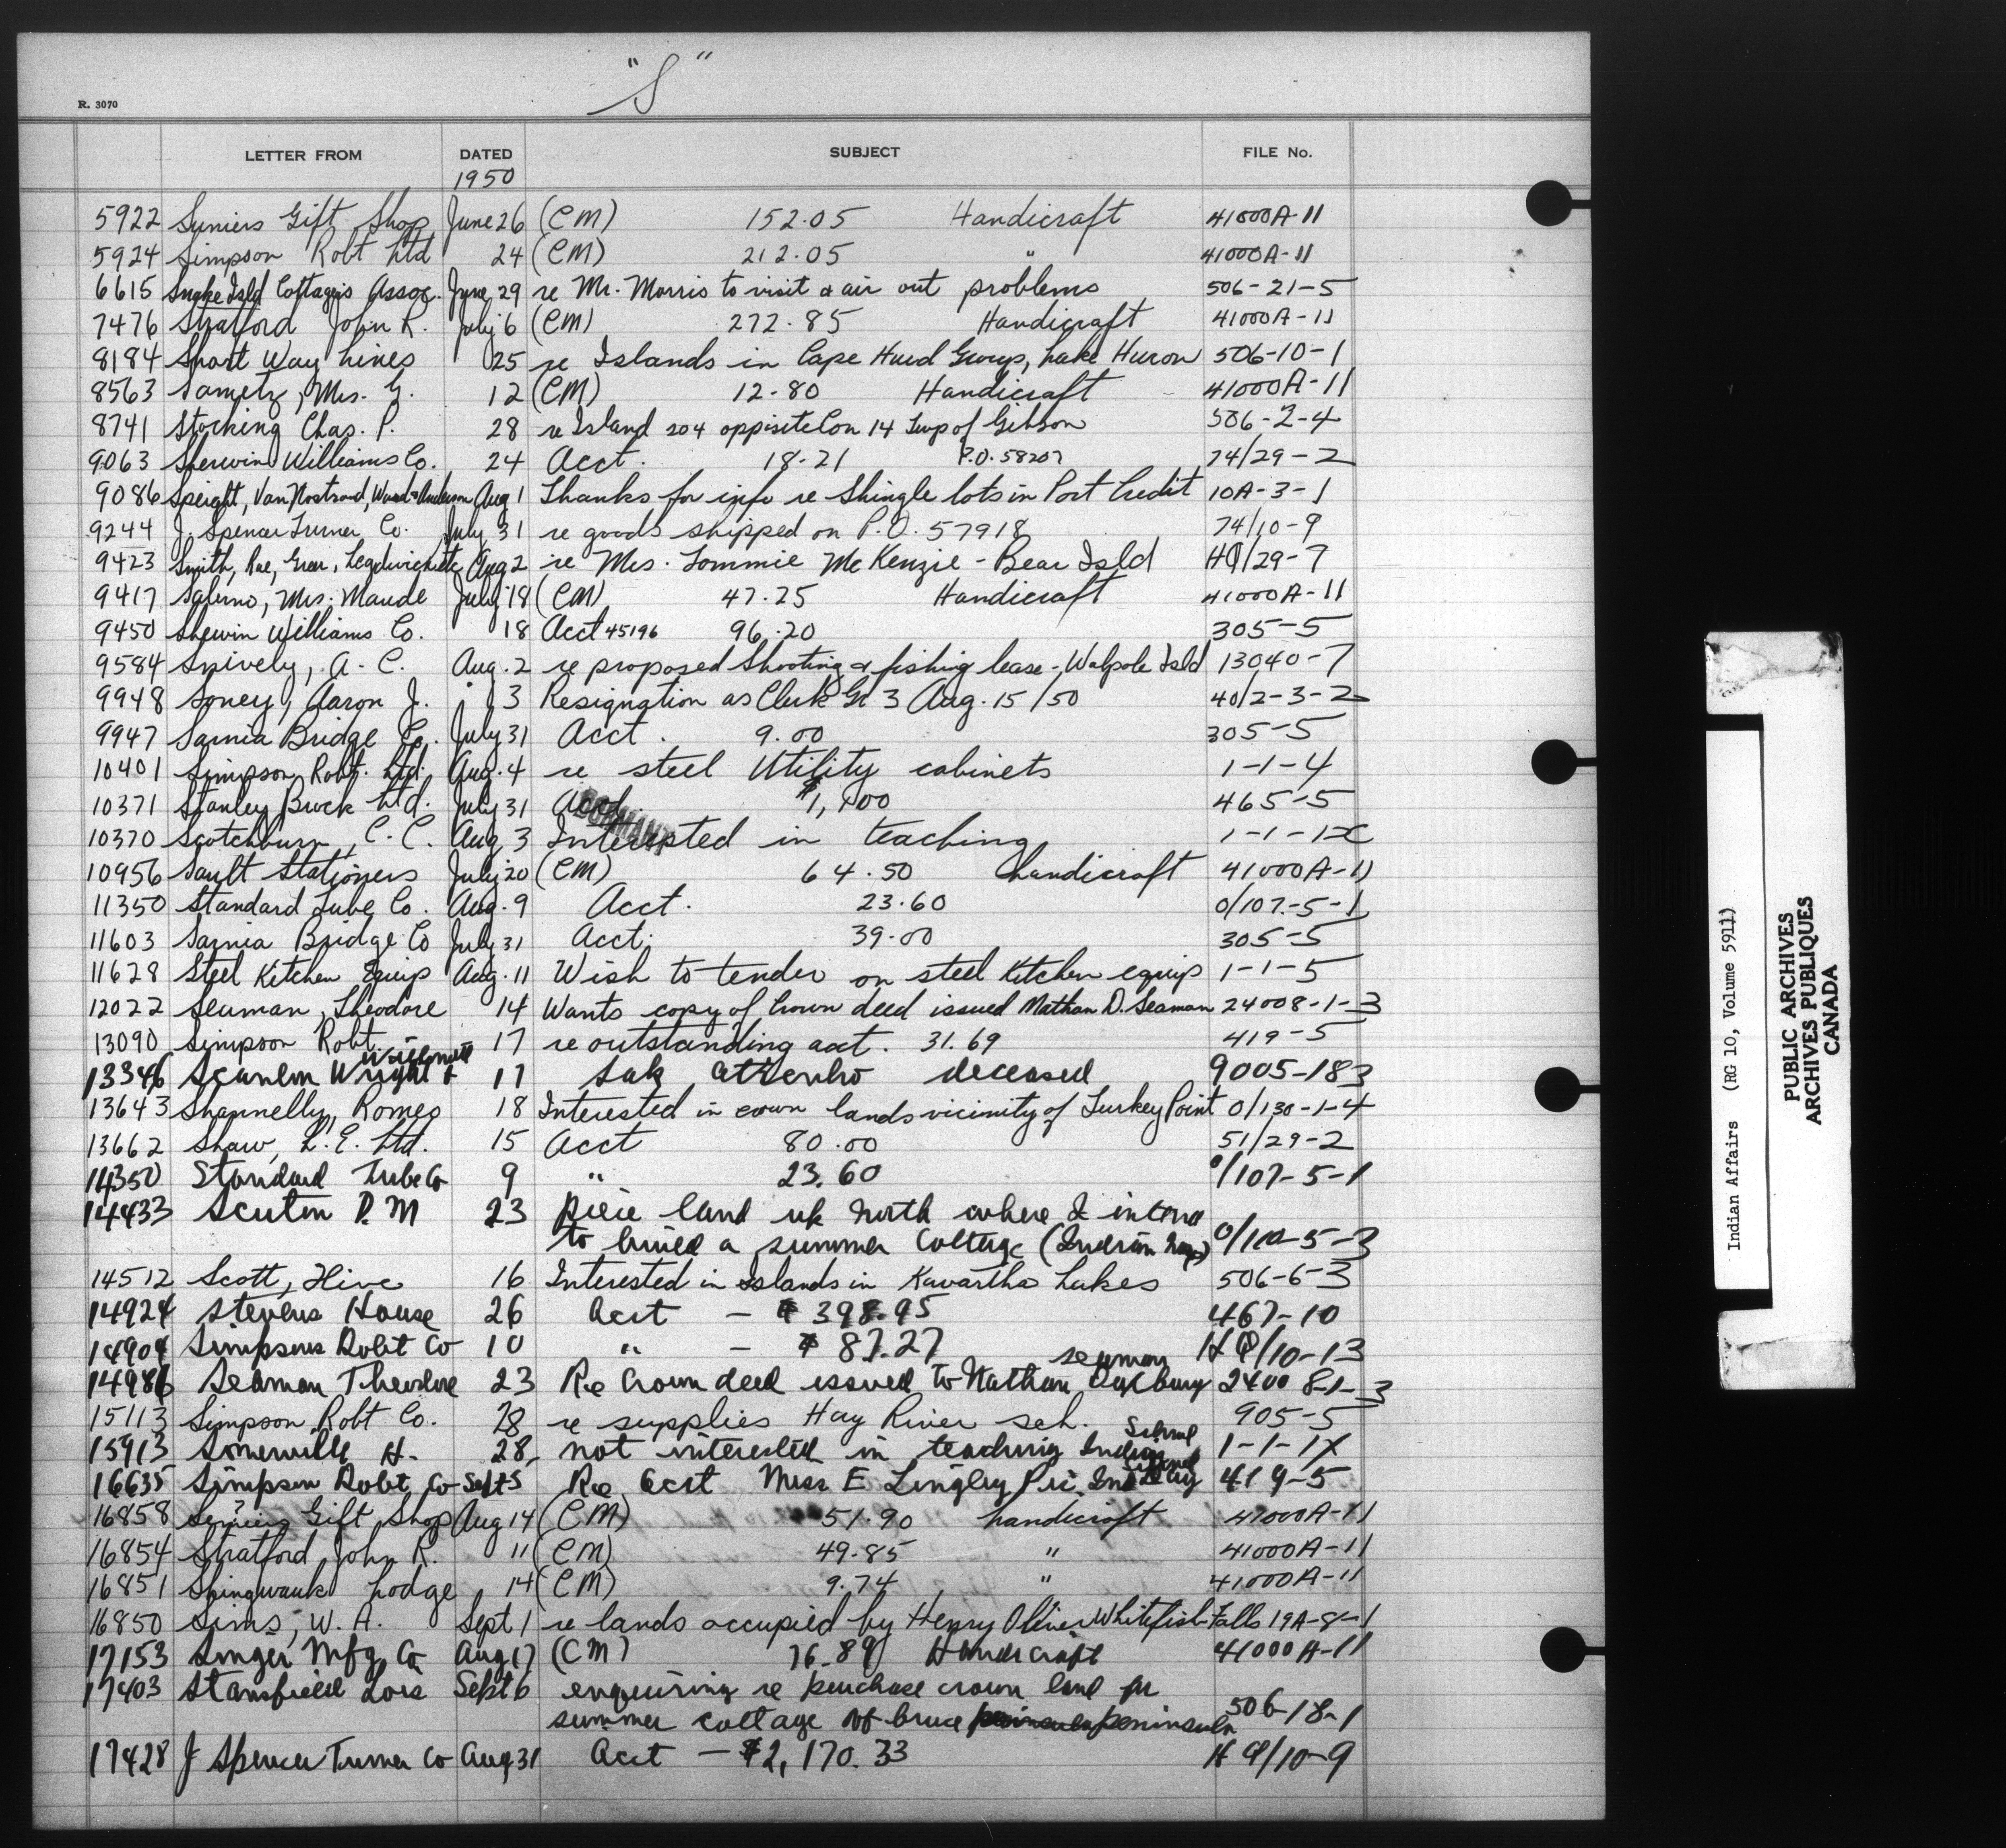 "S"
R. 3070
LETTER FROM DATED SUBJECT FILE No.
1950
5922 Gift Shop June 26 (CM) 152.05 Handicraft 41000A-11
5924 Simpson Robt Ltd 24 (CM) 212.05 " 41000A-11
6615 Snake Isld Cottagers Assoc. June 29 re Mr. Morris to visit & air out problems 506-21-5
7476 Stratford John R. July 6 (CM) 272.85 Handicraft 41000A-11
8184 Short Way Lines 25 re Islands in Cape Hurd Groups, Lake Huron 506-10-1
8563 Sametz, Mrs. G. 12 (CM) 12.80 Handicraft 41000A-11
8741 Stocking Chas. P. 28 re Island 204 opposite Con 14 Twp of Gibson 506-2-4
9063 Sherwin Williams Co. 24 Acct. 18.21 P.O. 58207 74/29-2
9086 Speight, Van Nostrand, Ward & Anderson Aug 1 Thanks for info re Shingle lots in Port Credit 10A-3-1
9244 J. Spencer Turner Co. July 31 re goods shipped on P.O. 57918 74/10-9
9423 Smith, Rae, Greer, Aug 2 re Mrs. Tommie McKenzie - Bear Isld HQ/29-7
9417 Salerno, Mrs. Maude July 18 (CM) 47.25 Handicraft 41000A-11
9450 Shewin Williams Co. 18 Acct 45196 96.20 305-5
9584 Snively, A. C. Aug. 2 re proposed Shooting & fishing lease - Walpole Isld 13040-7
9948 Soney, Aaron J. " 3 Resignation as Clerk Gr 3 Aug. 15/50 40/2-3-2
9947 Sarnia Bridge Co. July 31 Acct. 9.00 305-5
10401 Simpson, Robt. Ltd. Aug. 4 re steel Utility cabinets 1-1-4
10371 Stanley Brock Ltd. July 31 Acct. 465-5
DORMANT
10370 Scotchburn, C. C. Aug 3 Interested in teaching 1-1-1
10956 Sault Stationers July 20 (CM) 64.50 handicraft 41000A-11
11350 Standard Tube Co. Aug. 9 Acct. 23.60 0/107-5-1
11603 Sarnia Bridge Co July 31 Acct. 39.00 305-5
11628 Steel Kitchen Equip Aug. 11 Wish to tender on steel Kitchen equip 1-1-5
12022 Seaman, Theodore 14 Wants copy of Crown deed issued Nathan D. Seaman 24008-1-3
13090 Simpson Robt. 17 re outstanding acct. 31.69 419-5
13346 Scanlon Wright & 17 deceased 9005-183
13643 Shannelly, Romeo 18 Interested in crown lands vicinity of Turkey Point 0/130-1-4
13662 Shaw, L. E. Ltd. 15 Acct 80.00 51/29-2
14350 Standard Tube Co 9 " 23.60 0/107-5-1
14433 D. M 23 piece land up north where I intend
to build a summer cottage (Indian 0/110-5-3
14512 Scott, Clive 16 Interested in Islands in Kawartha Lakes 506-6-3
14924 Stevens House 26 Acct - $ 398.95 467-10
14904 Simpsons Robt Co 10 " - $ 87.27 HQ/10-13
14986 Seaman Theodore 23 Re Crown deed issued to Nathan Duxbury Seaman 24008-1-3
15113 Simpson Robt Co. 28 re supplies Hay River sch. 905-5
15913 Somerville H. 28 not interested in teaching Indian School 1-1-1X
16635 Simpson Robt Co Sept 5 Re Acct Miss E Lingley 419-5
16858 Gift Shop Aug 14 (CM) 51.90 handicraft 41000A-11
16854 Stratford John R. 11 (CM) 49.85 " 41000A-11
16851 Shingwauk Lodge 14 (CM) 9.74 " 41000A-11
16850 Sims, W. A. Sept 1 re lands occupied by Henry Oliver Whitefish Falls 19A-8-1
17153 Singer Mfg Co Aug 17 (CM) 76.89 Handicraft 41000A-11
17403 Stansfield Lois Sept 6 enquiring re purchase crown land for
summer cottage of bruce peninsula 506-18-1
17428 J Spencer Turner Co Aug 31 Acct - $2,170.33 HQ/10-9
Indian Affairs (RG 10, Volume 5911)
PUBLIC ARCHIVES
ARCHIVES PUBLIQUES
CANADA